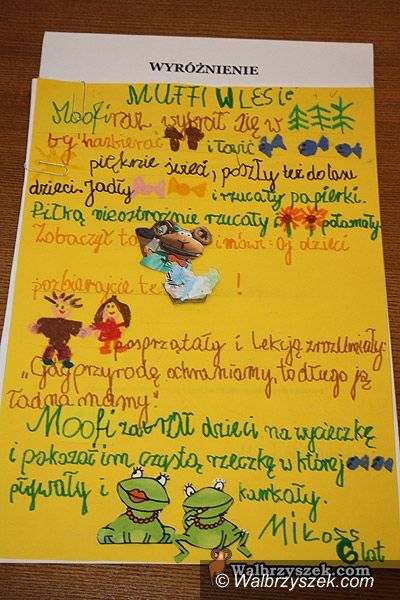 WYRÓŻNIENIE
MUFFI W LESIE
Moofi raz wybrał się w
by nazbierać i łowić
pięknie świeci, poszły też do lasu
dzieci. Jadły i rzucały papierki.
Piłką nieostrożnie rzucały i połamały
Zobaczył to i mówi: Oj dzieci
pozbierajcie te !
posprzątały i lekcję zrozumiały:
"Gdy przyrodę ochraniamy, to długo ją
ładną mamy."
Moofi zabrał dzieci na wycieczkę
i pokazał im czystą rzeczkę w której
pływały i kumkały.
6 lat
Walbrzyszek.com
© Walbrzyszek.com